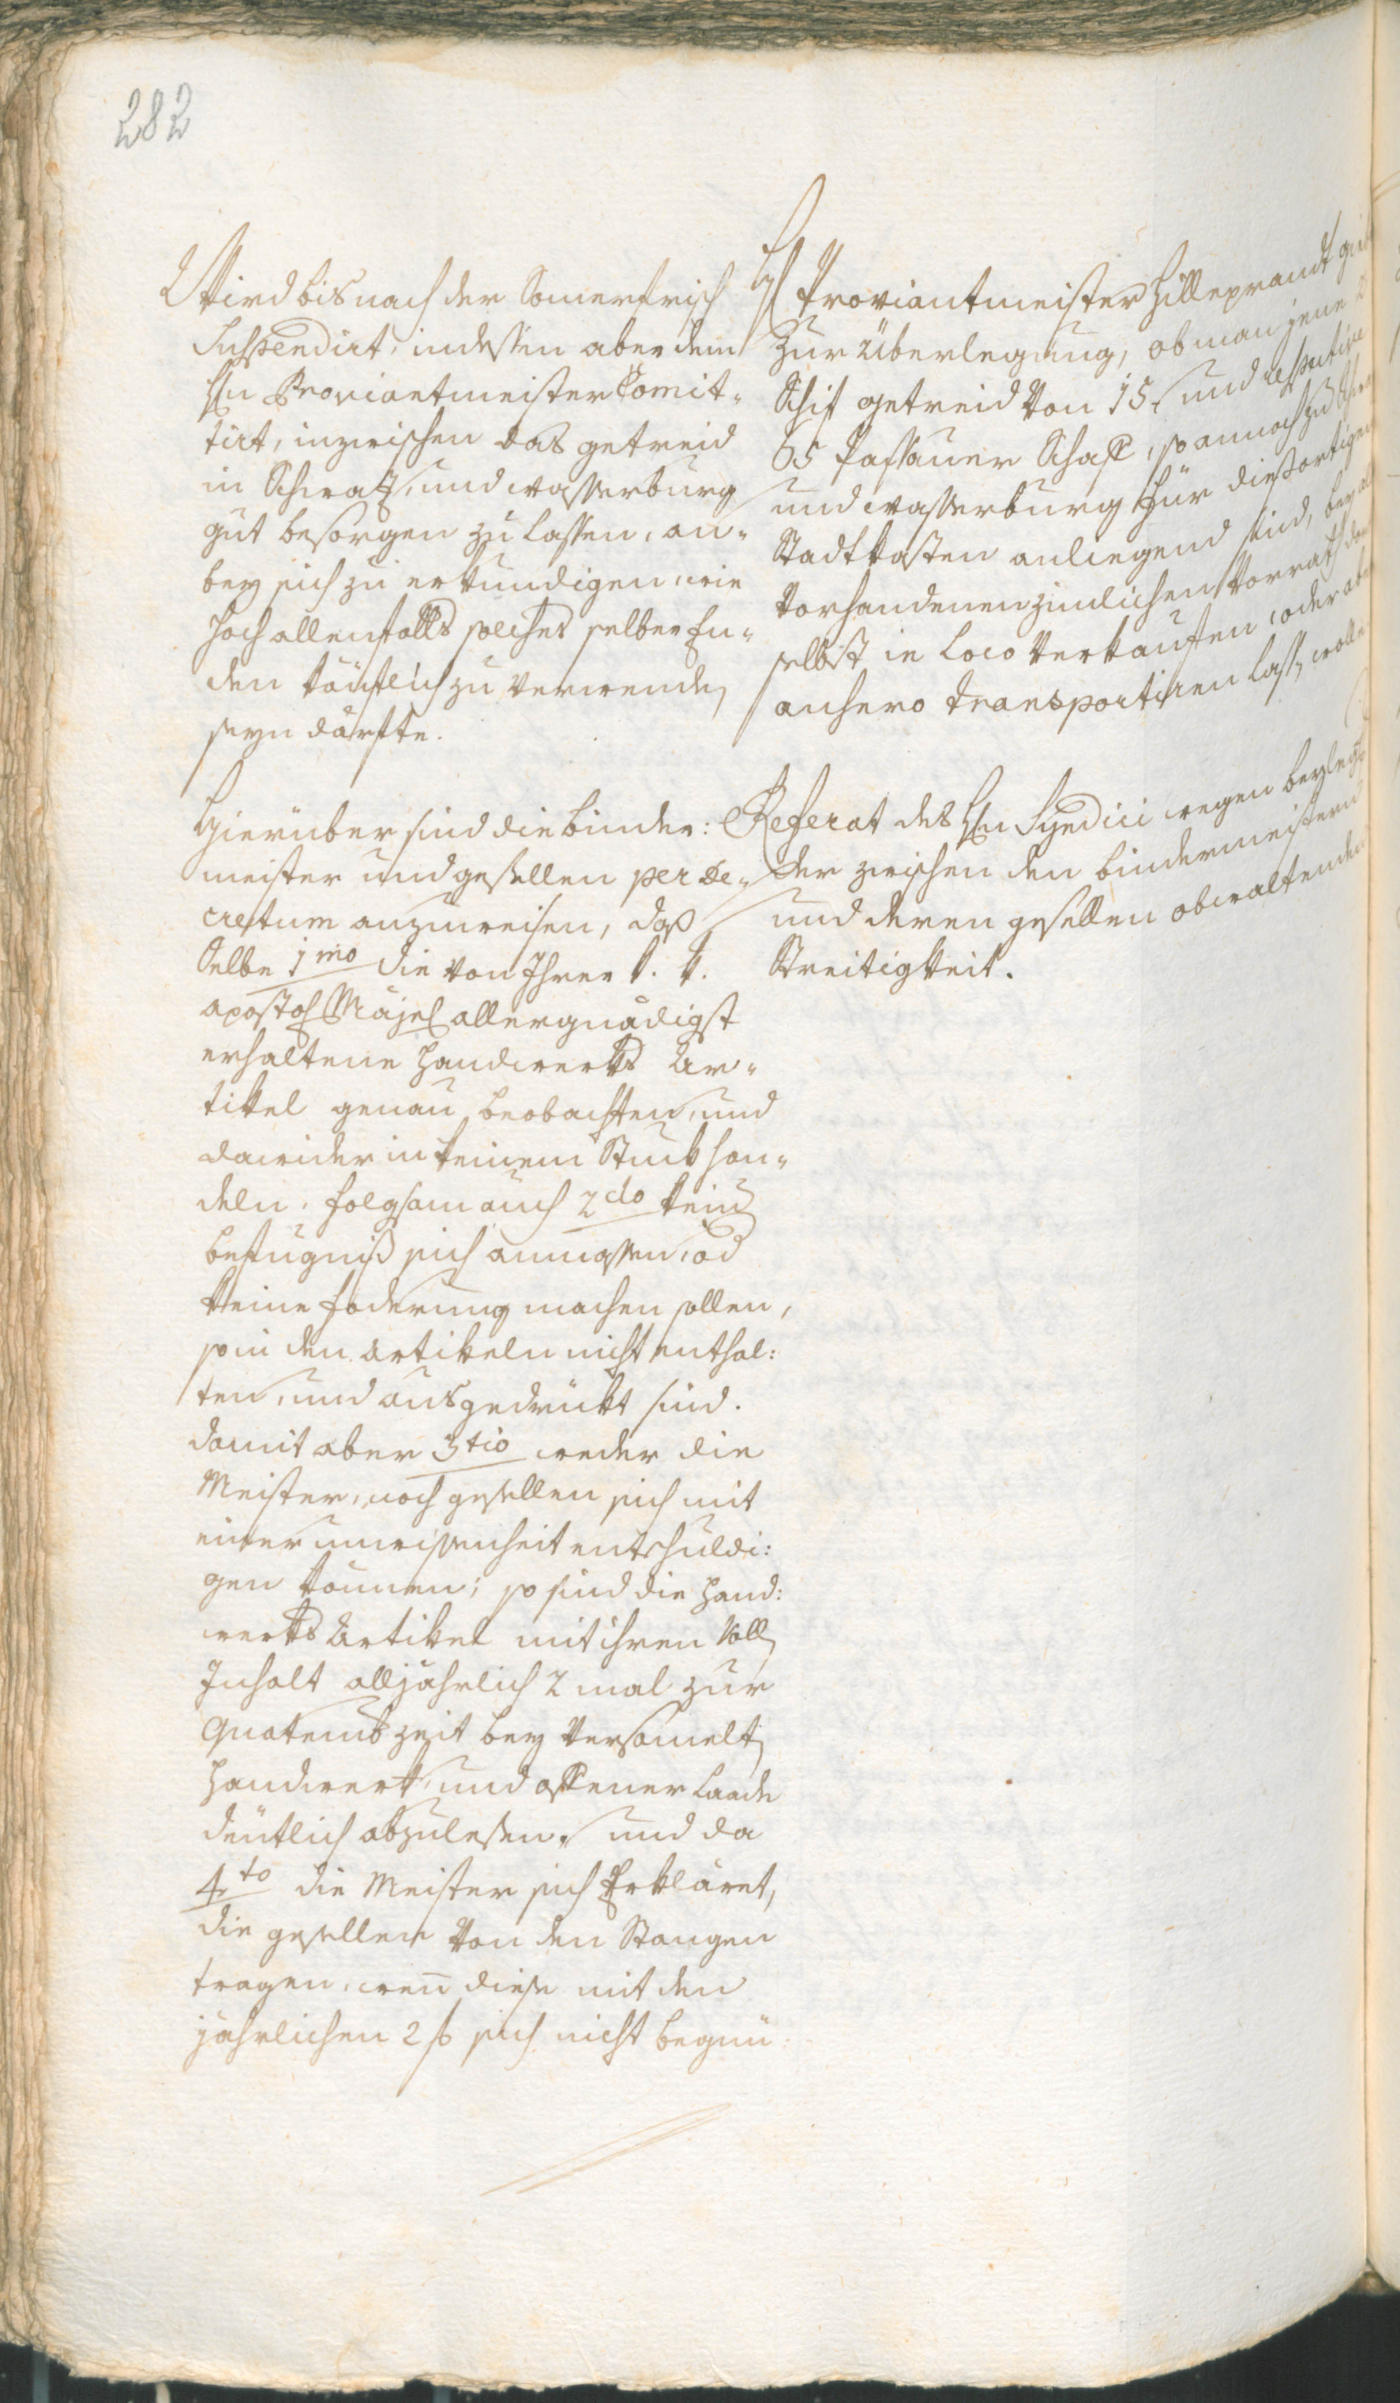 282
Wird bis nach der Sommerfrisch
Suspendirt, indessen aber dem
Hn Proviantmeister Comit-
tirt, inzwischen das getreid
in Schwatz, und wasserburg
gut besorgen zu lassen, an-
bey sich zu erkundigen, wie
hoch allenfalls solches selber En-
den käuflich zu verwenden
seyn dürfte.
Hierüber sind die binder:
meister und gesellen per De-
cretum anzuweisen, daß
Selbe 1mo die von Ihrer k. k.
apostol Majest allergnädigst
erhaltene Handwerks Ar-
tikel genau beobachten, und
dawider in keinem Stuck han-
deln, folgsam auch 2do keine
befugniß sich anmassen, od
keine foderung machen sollen,
so in den Artikeln nicht enthal:
ten, und ausgedrückt sind.
damit aber 3tio weder die
Meister, noch gesellen sich mit
einer unwissenheit entschuldi:
gen können; so sind die Hand:
werks Artikel mit ihren Voll
Inhalt alljährlich 2 mal zur
Quatembzeit bey versamelt
Handwerk, und offener Laade
deutlich abzulesen. und da
4to die Meister sich Erkläret,
die gesellen von den Stangen
tragen, wenn diese mit den
jährlichen 2 f sich nicht begnü
H Proviantmeister Hilleprandt
zur Überlegung, ob man jene 2
Schif getreid von 15. und respective
65 Passauer Schaff, so annoch zu
und wasserburg für diesortigen
Stadtkasten anliegend sind, bey
vorhandenen zimlichen Vorrath
selbst in Loco verkauffen, oder aber
anhero transportiren lassen wolle
Referat des Hn Syndici wegen beyleg
der zwischen den bindermeistern
und deren gesellen obwaltenden
Streitigkeit.